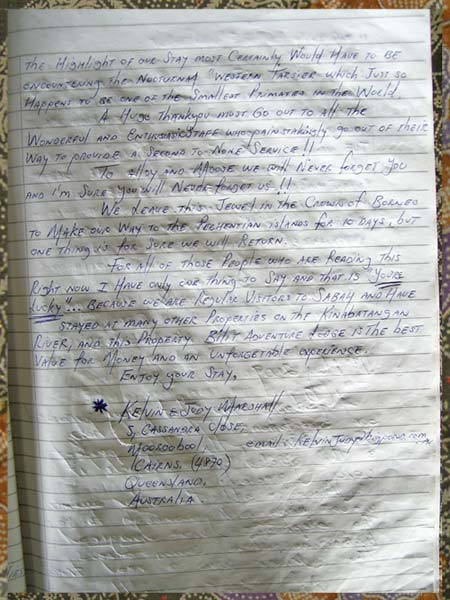 The Highlight of our Stay most Certainly Would Have to be
encountering the Nocturnal "Western Tarsier which Just so
Happens to be one of the Smallest Primates in the World.
A Huge Thankyou must Go out to all the
Wonderful and Enthusiastic Staff who painstakingly go out of their
Way to provide a Second to None Service!!
To and Moose we will Never forget you
and I'm Sure you will Never forget us!!
We Leave this Jewel in the Crown of Borneo
to Make our Way to the Perhentian islands for 10 Days, but
one thing is for Sure we will Return.
For all of those People who are Reading this
Right now I Have only one thing to Say and that is "you're
Lucky"... Because we are Regular Visitors to Sabah and Have
Stayed at many other Properties on the Kinabatangan
River, and this Property. Bilit Adventure Lodge is the best
Value for Money and an Unforgetable experience.
Enjoy your Stay,
Kelvin & Judy Marshall
5, Cassandra Close,
Mooroobool,
Cairns, (4870) email:
Queensland,
Australia